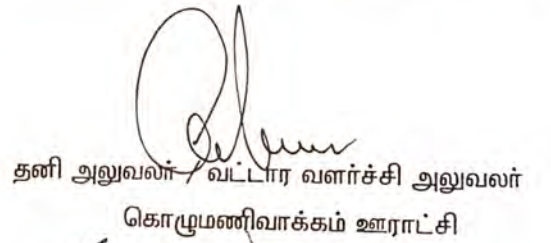 தனி அலுவலர் / வட்டார வளர்ச்சி அலுவலர்
கொழுமணிவாக்கம் ஊராட்சி